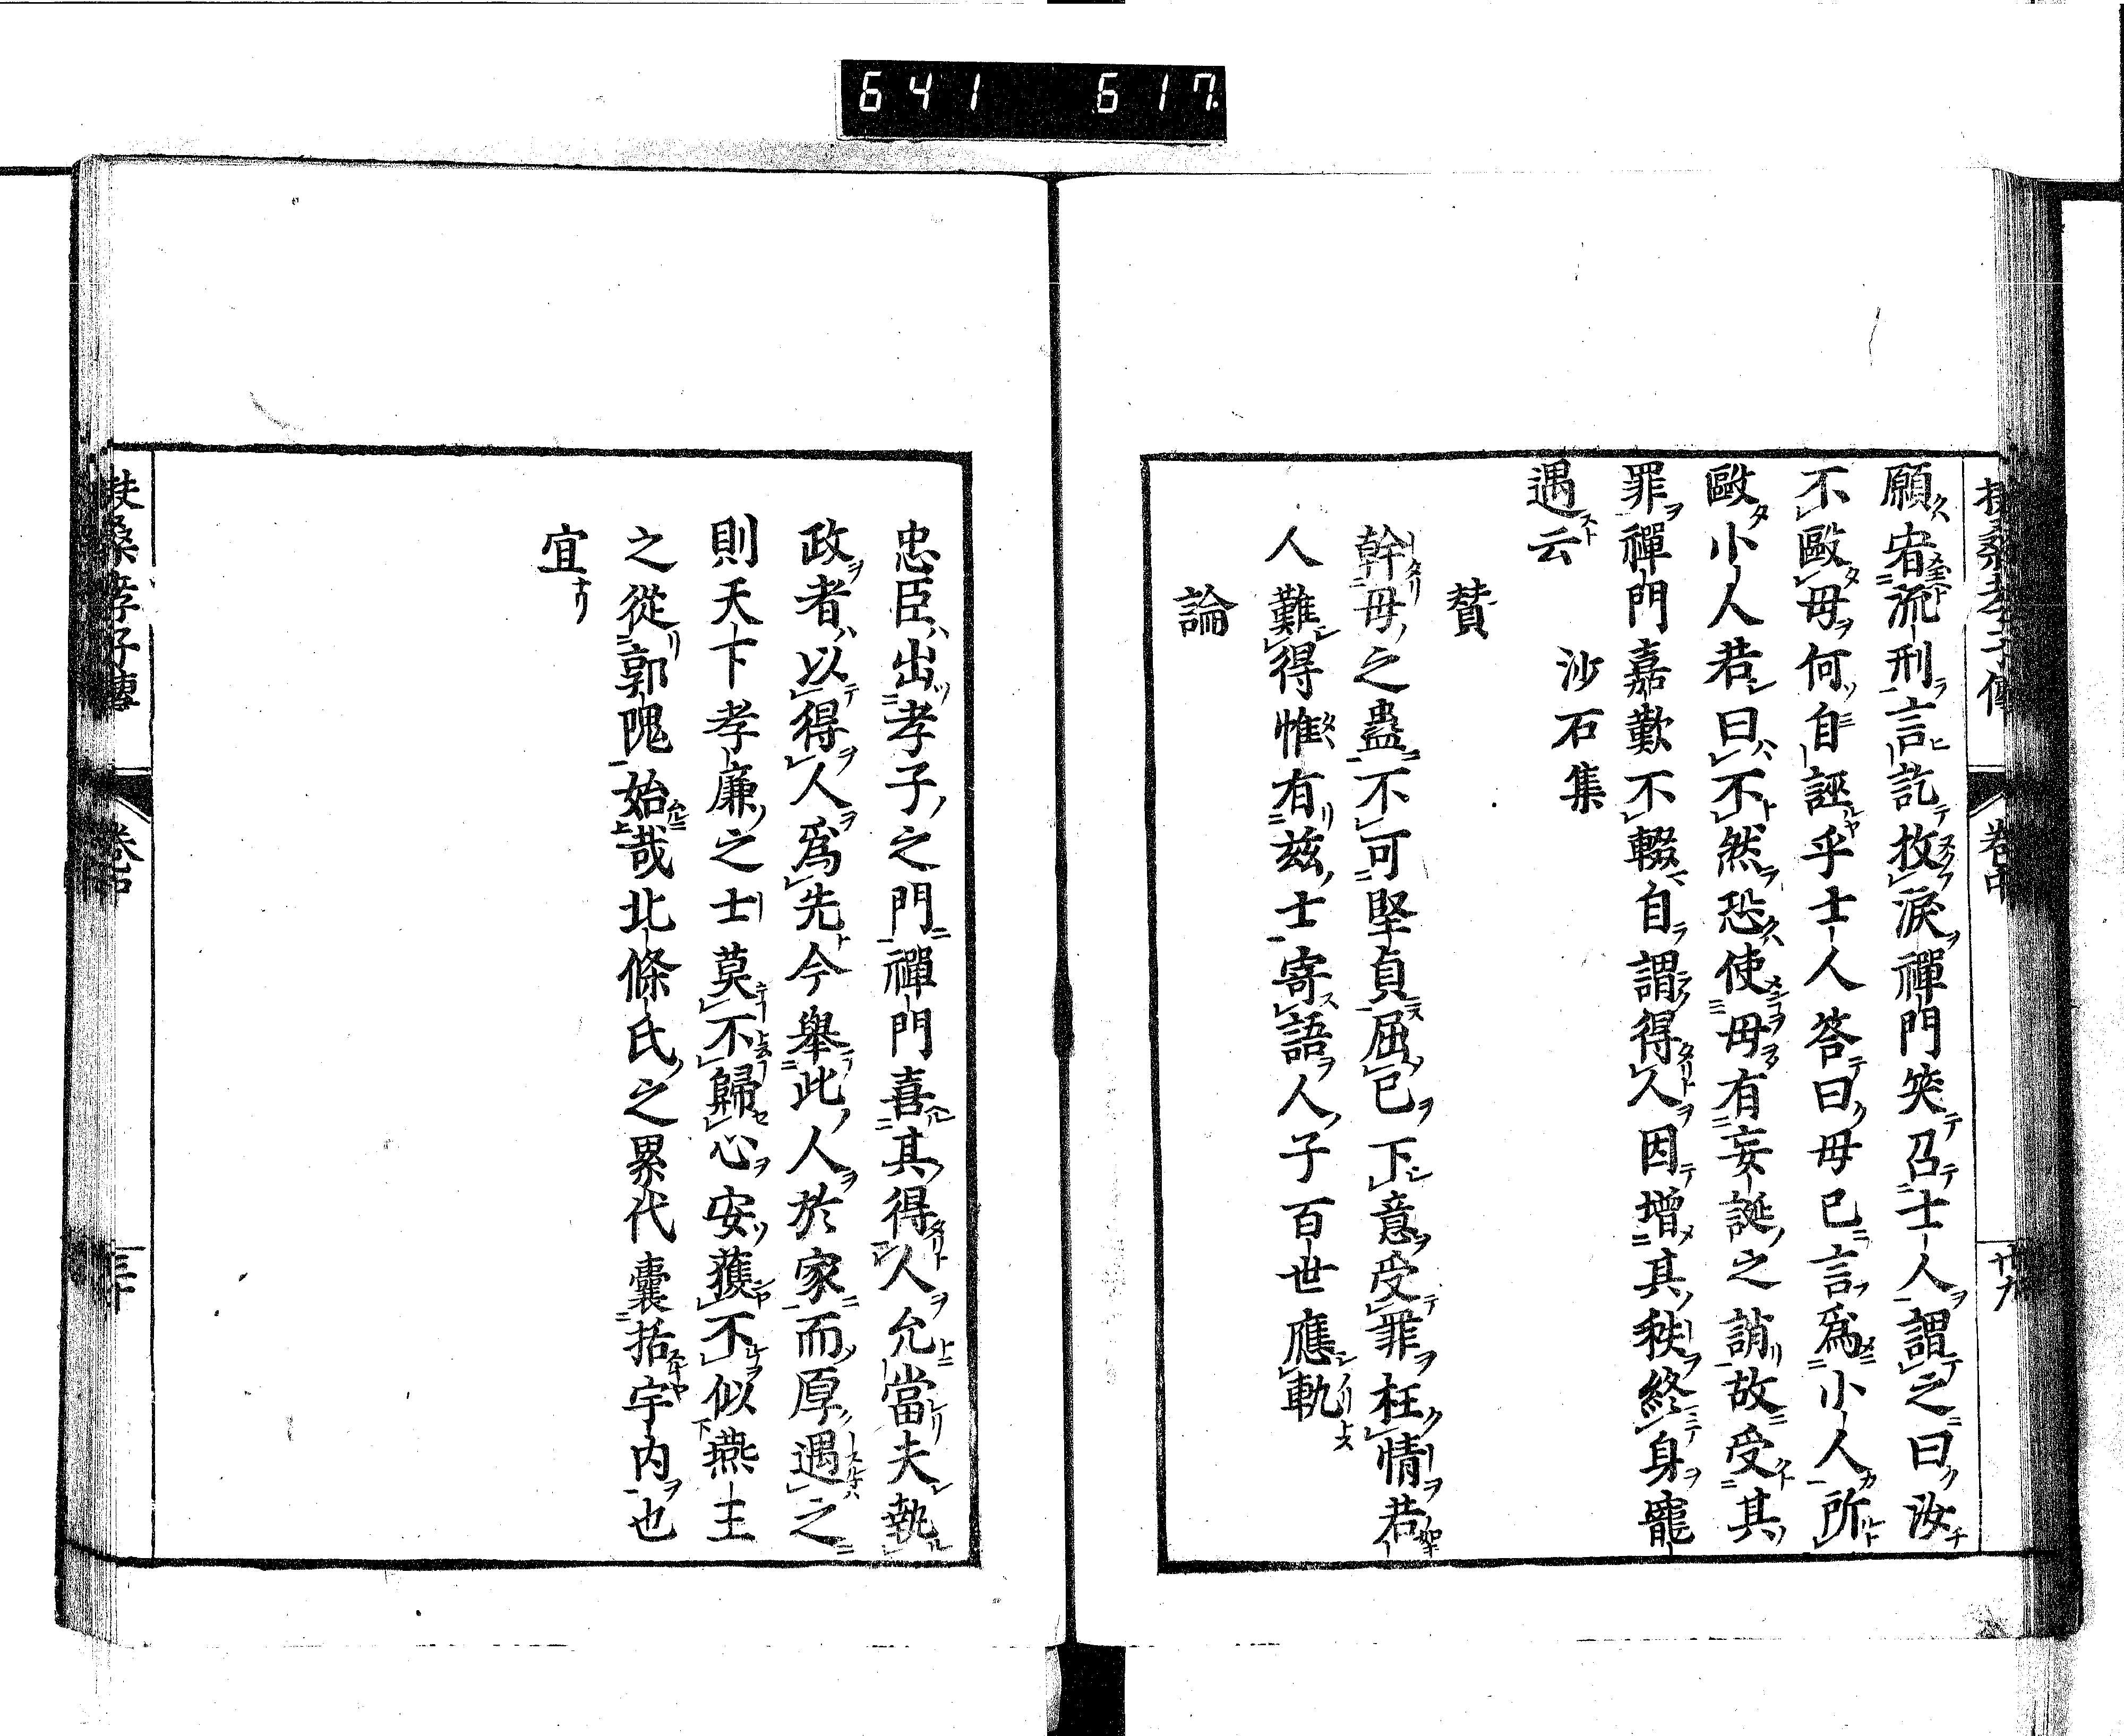 641 617
扶桑孝子傳 卷中 廿九
願宥流刑言訖抆淚禪門笑召士人謂之曰汝
不毆母何自誣乎士人答曰母已言爲小人所
毆小人若曰不然恐使母有妄誕之誚故受其
罪禪門嘉歎不輟自謂得人因增其秩終身寵
遇云 沙石集
贊
幹母之蠱不可堅貞屈已下意受罪枉情若
人難得惟有玆士寄語人子百世應軌
論
忠臣出孝子之門禪門喜其得人允當夫執
政者以得人爲先今舉此人於家而厚遇之
則天下孝廉之士莫不歸心安獲不似燕王
之從郭隗始哉北條氏之累代囊括宇内也
宜
扶桑孝子傳 卷中 三十